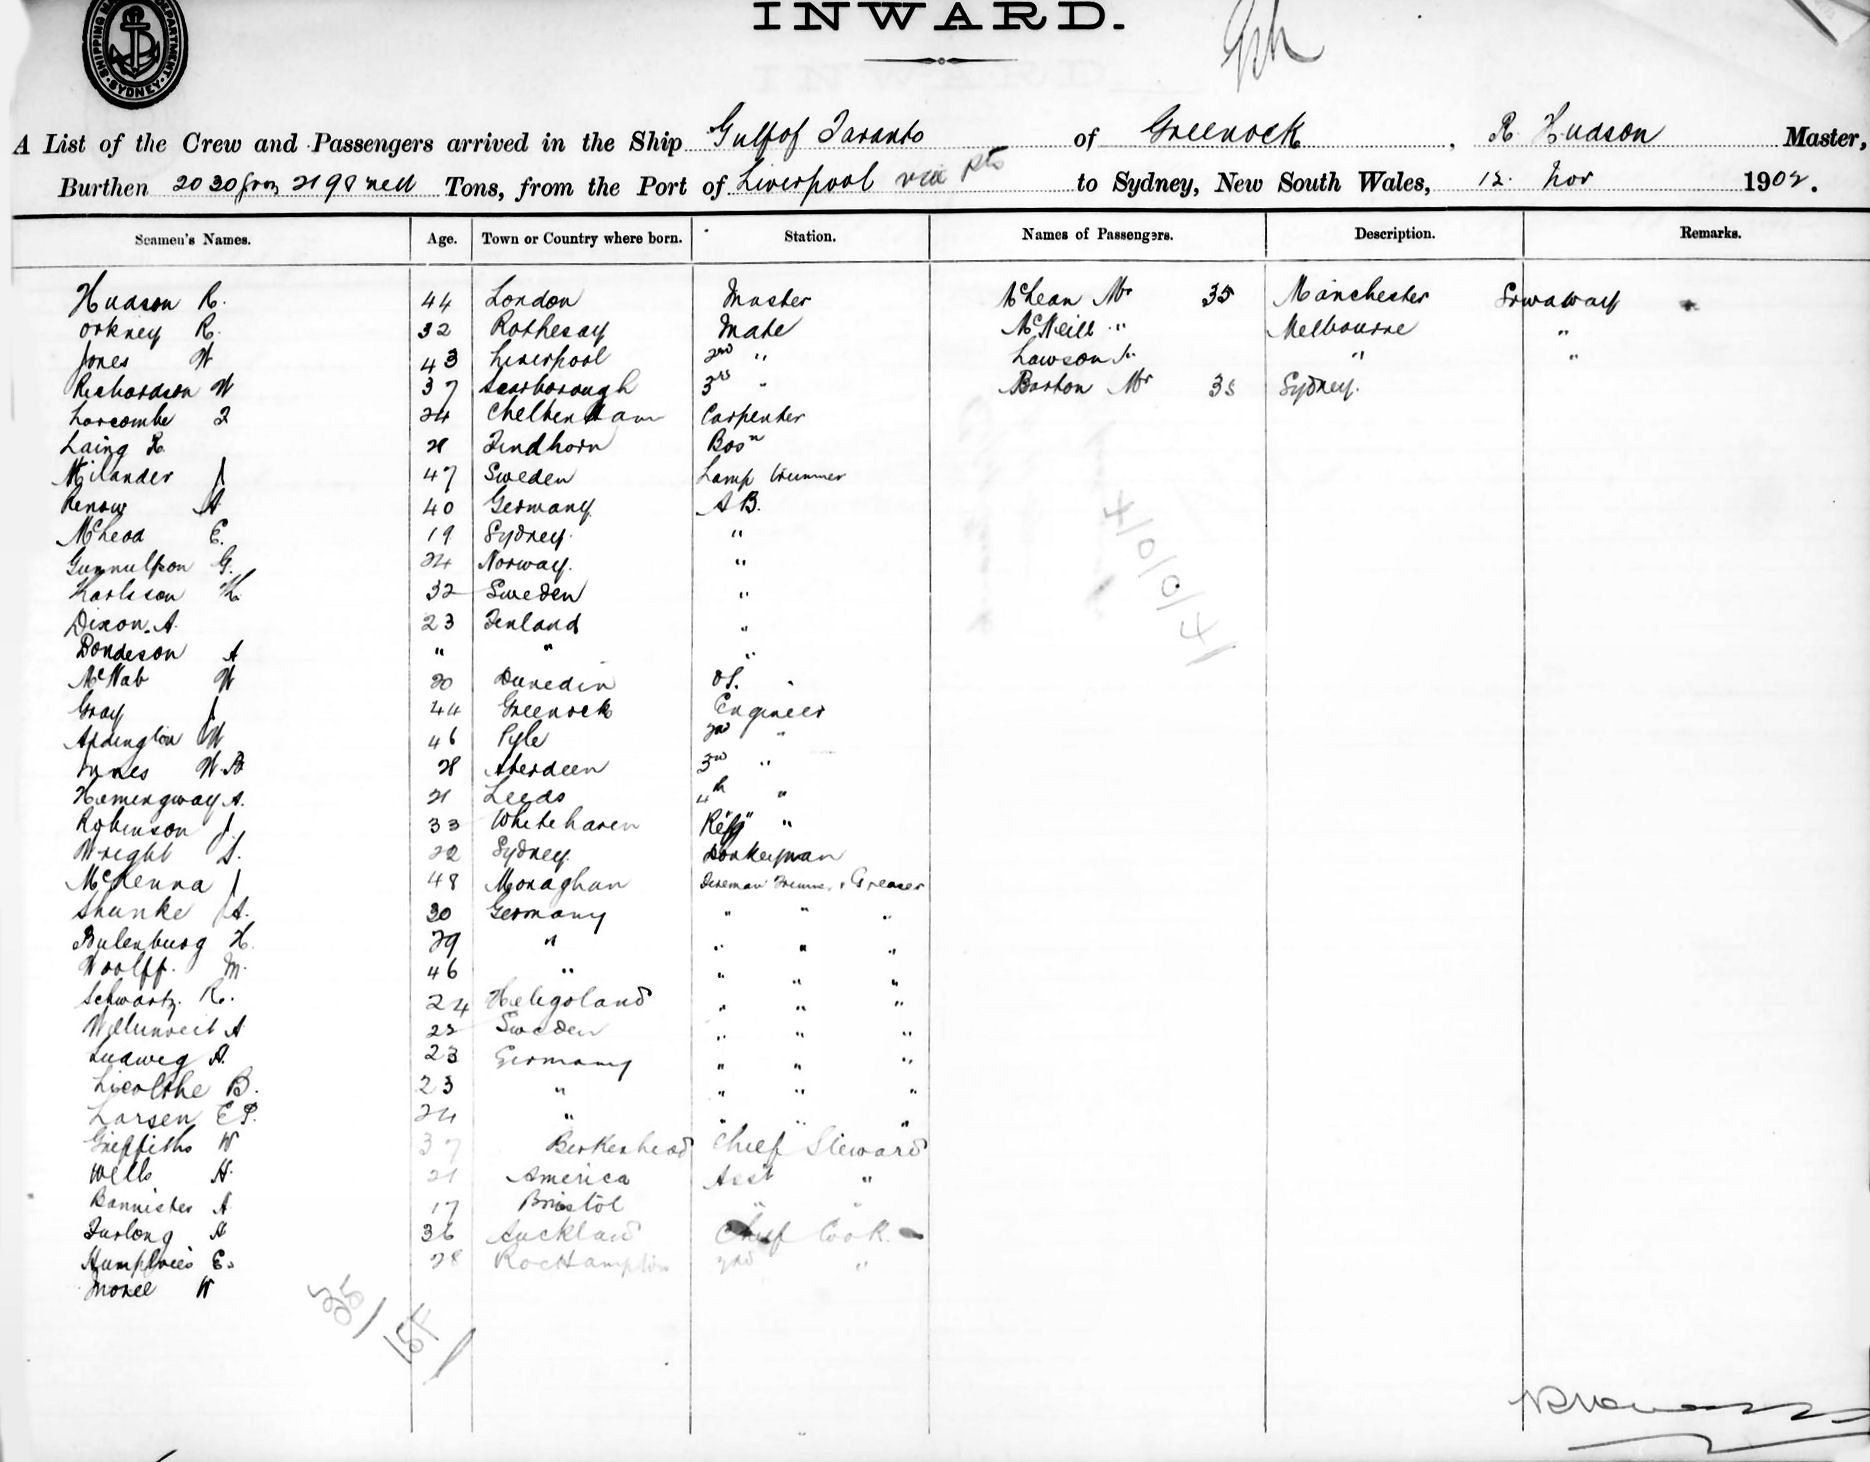 SHIPPING MASTER'S DEPARTMENT SYDNEY
INWARD.
A List of the Crew and Passengers arrived in the Ship Gulf of Taranto of Greenock, R. Hudson Master,
Burthen Tons, from the Port of Liverpool via pts to Sydney, New South Wales, 12 Nov 1902.
Seamen's Names. Age. Town or Country where born. Station. Names of Passengers. Description. Remarks.
Hudson R. 44 London Master McLean Mr 35 Manchester
Orkney R. 32 Rothesay Mate McNeill " Melbourne "
Jones W 43 Liverpool 2nd " Lawson " "
Richardson W 37 Scarborough 3rd " Barton Mr 35 Sydney.
Larcombe F 24 Cheltenham Carpenter
Laing R. Findhorn Bosn
Milander J 47 Sweden Lamp trimmer
Renow A 40 Germany A B.
McLeod E. 19 Sydney "
G. 24 Norway. "
Karlsson K. 32 Sweden "
Dixon. A. 23 Finland "
A " " "
McNab W 20 Dunedin OS.
Gray J 44 Greenock Engineer
W 46 Pyle 2nd "
Innes W.B 28 Aberdeen 3rd "
Hemingway A. 21 Leeds 4th "
Robinson J. 33 Whitehaven Refg "
Wright S. 22 Sydney. Donkeyman
McKenna J 48 Monaghan Fireman Trimmer & Greaser
Shunke A. 30 Germany " " "
Bulenburg H. 29 " " " "
Woolff. M. 46 " " " "
Schwartz. R. 24 Heligoland " " "
A 22 Sweden " " "
Ludweg A. 23 Germany " " "
B. 23 " " " "
Larsen E P. 24 " " " "
Griffiths W 37 Berkenhead Chief Steward
Wells H. 21 America Asst "
Bannister A 17 Bristol " "
Furlong A 36 Auckland Chief Cook
Humphries E. 28 RocHampton 2nd "
Morel W